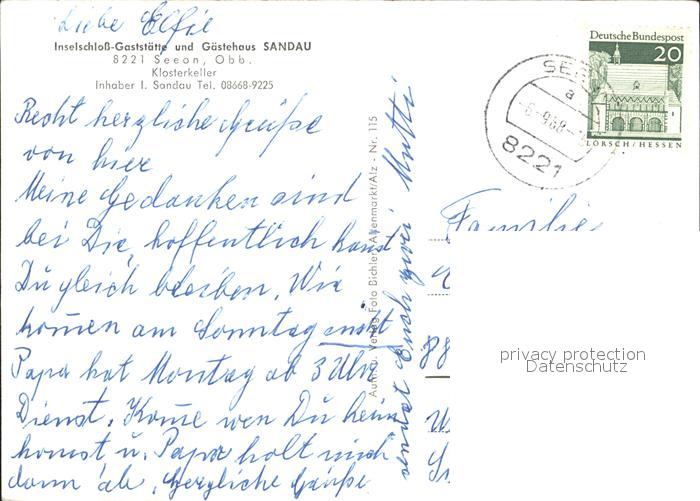 Liebe Elfie
Inselschloß-Gaststätte und Gästehaus SANDAU
8221 Seeon, Obb.
Klosterkeller
Inhaber I. Sandau Tel. 08668-9225
Recht herzliche Grüße
von hier
Meine Gedanken sind
bei Dir, hoffentlich kannst
Du gleich bleiben. Wir
kom̄en am Sonntag nicht
Papa hat Montag ab 3 Uhr
Dienst. Kom̄e wen Du heim
komst u. Papa holt mich
dann ab, herzliche Grüße
sendet Euch zwei Mutti
Auf u. Verlag Foto Bichler, Altenmarkt/Alz - Nr. 115
Deutsche Bundespost
20
LORSCH/HESSEN
8221
a
Familie
88
privacy protection
Datenschutz